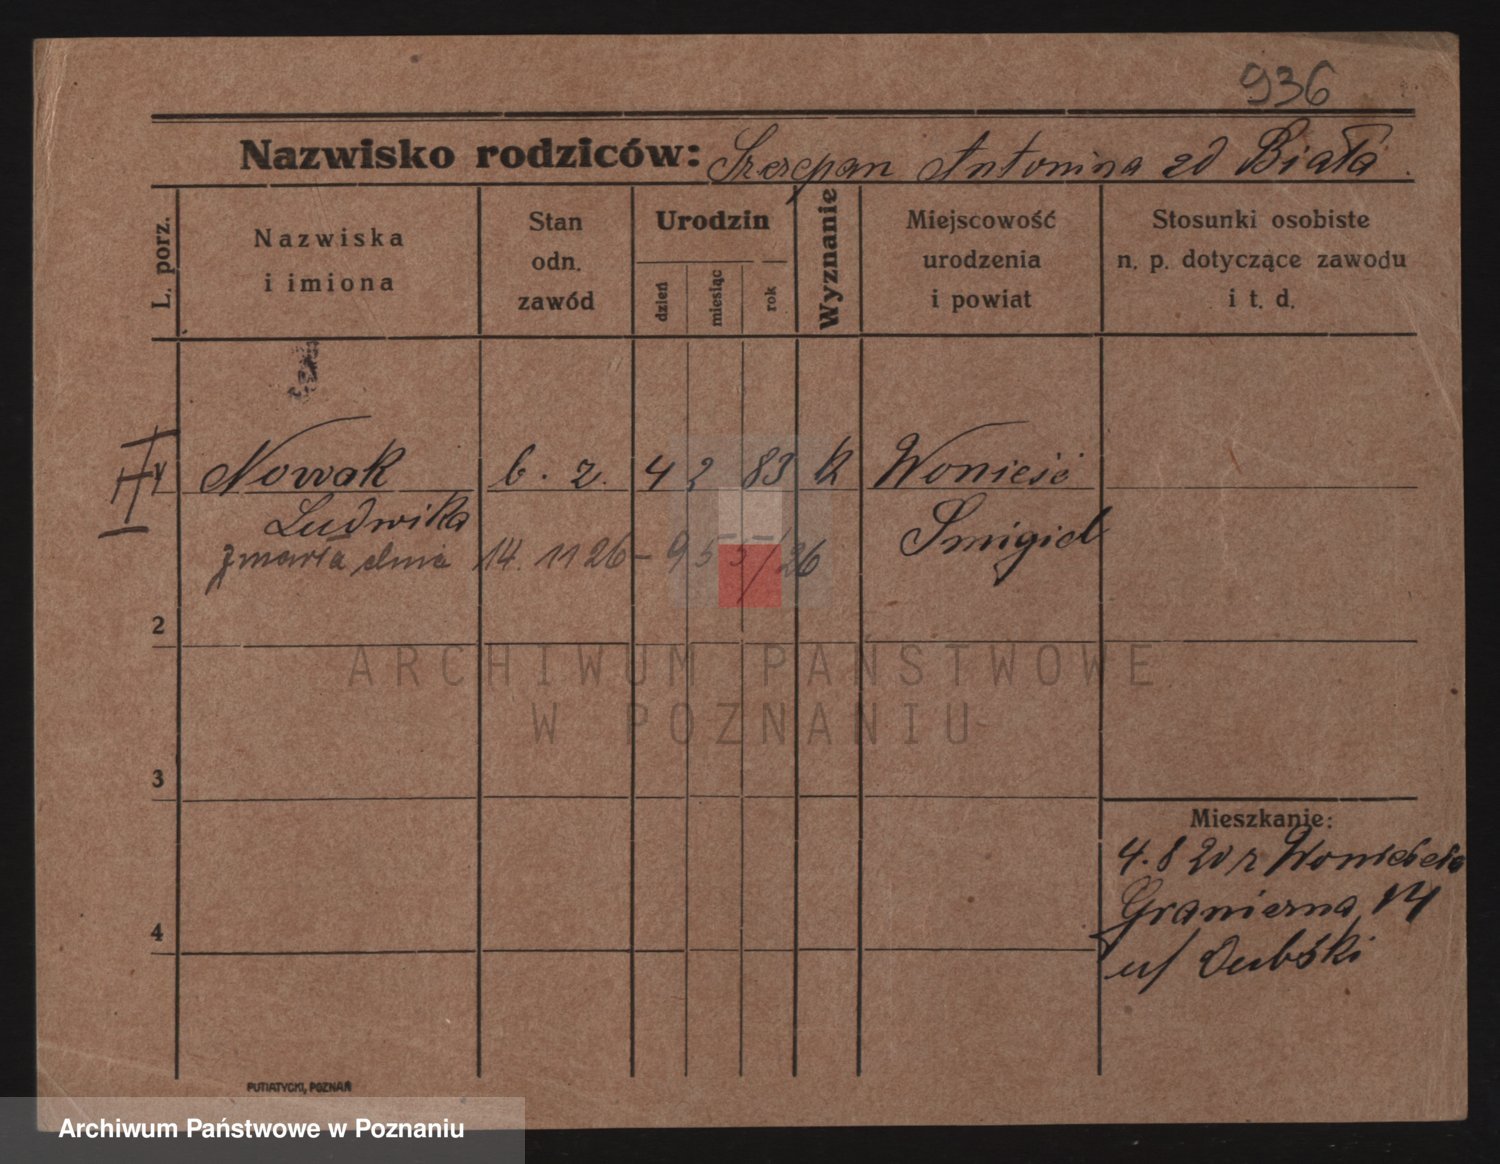 936
Nazwisko rodziców: Szczepan Antonina zd Biała
L. porz.
Nazwiska
i imiona
Stan
odn.
zawód
Urodzin
dzień
miesiąc
rok
Wyznanie
Miejscowość
urodzenia
i powiat
Stosunki osobiste
n. p. dotyczące zawodu
i t. d.
Nowak b. z. 4 2 83 k Wonieść
Ludwika Śmigiel
zmarła dnia 14. 11 26 - 955/26
2
3
4
Mieszkanie:
4. 8 20 r
Graniczna 14
u/ Dubski
PUTIATYCKI, POZNAŃ
ARCHIWUM PAŃSTWOWE
W POZNANIU
Archiwum Państwowe w Poznaniu